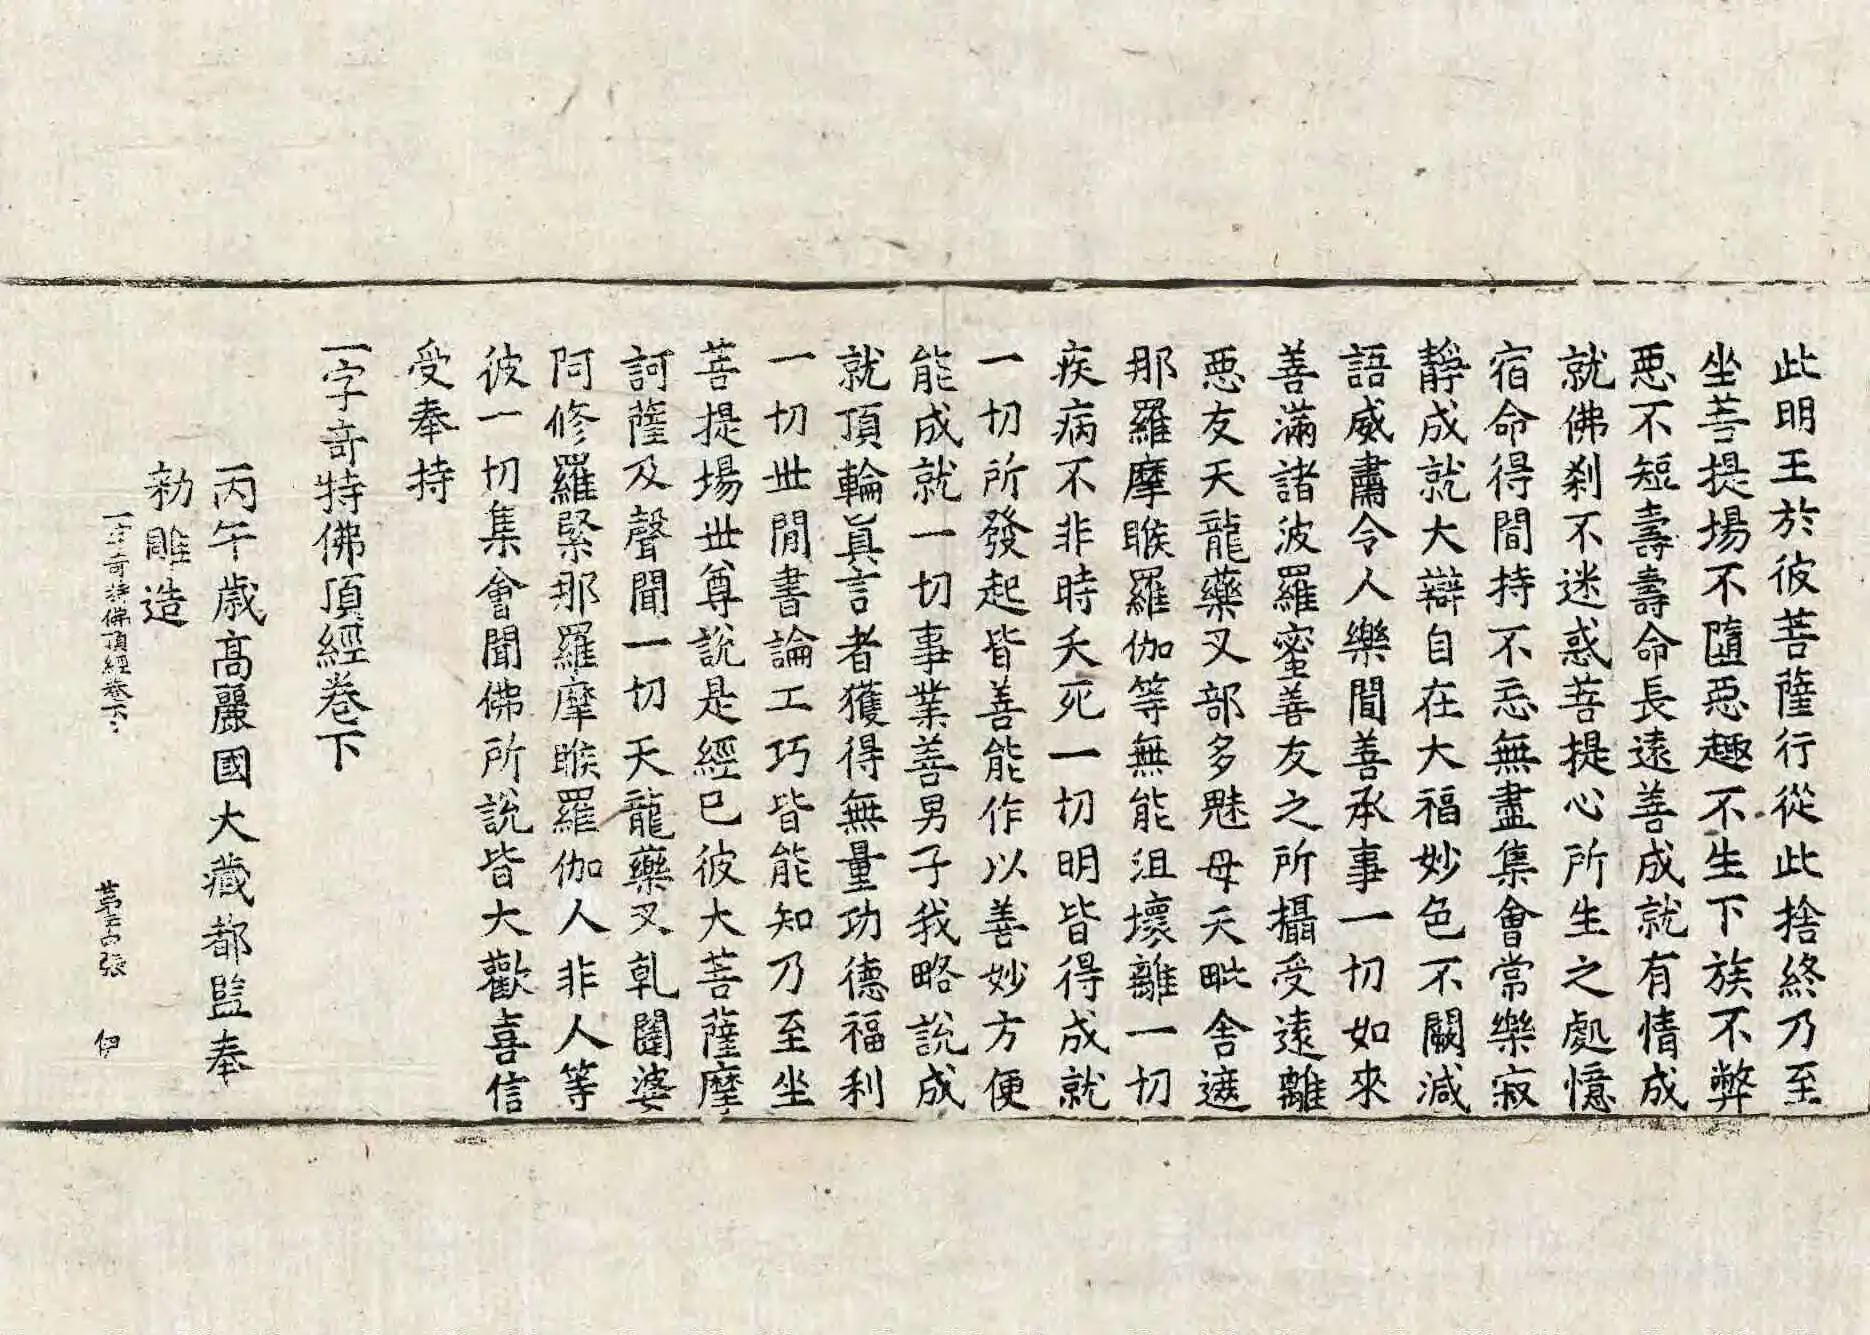 此明王於彼菩薩行從此捨終乃至
坐菩提場不墮惡趣不生下族不弊
惡不短壽壽命長遠善成就有情成
就佛刹不迷惑菩提心所生之處憶
宿命得聞持不忘無盡集會常樂寂
靜成就大辯自在大福妙色不闕減
語威肅令人樂聞善承事一切如來
善滿諸波羅蜜善友之所攝受遠離
惡友天龍藥叉部多魅母天毗舍遮
那羅摩睺羅伽等無能沮壞離一切
疾病不非時夭死一切明皆得成就
一切所發起皆善能作以善妙方便
能成就一切事業善男子我略說成
就頂輪眞言者獲得無量功德福利
一切世間書論工巧皆能知乃至坐
菩提場世尊說是經已彼大菩薩摩
訶薩及聲聞一切天龍藥叉乹闥婆
阿修羅緊那羅摩睺羅伽人非人等
彼一切集會聞佛所說皆大歡喜信
受奉持
一字奇特佛頂經卷下
丙午歲高麗國大藏都監奉
勑雕造
一字奇特佛頂經卷下 張 伊